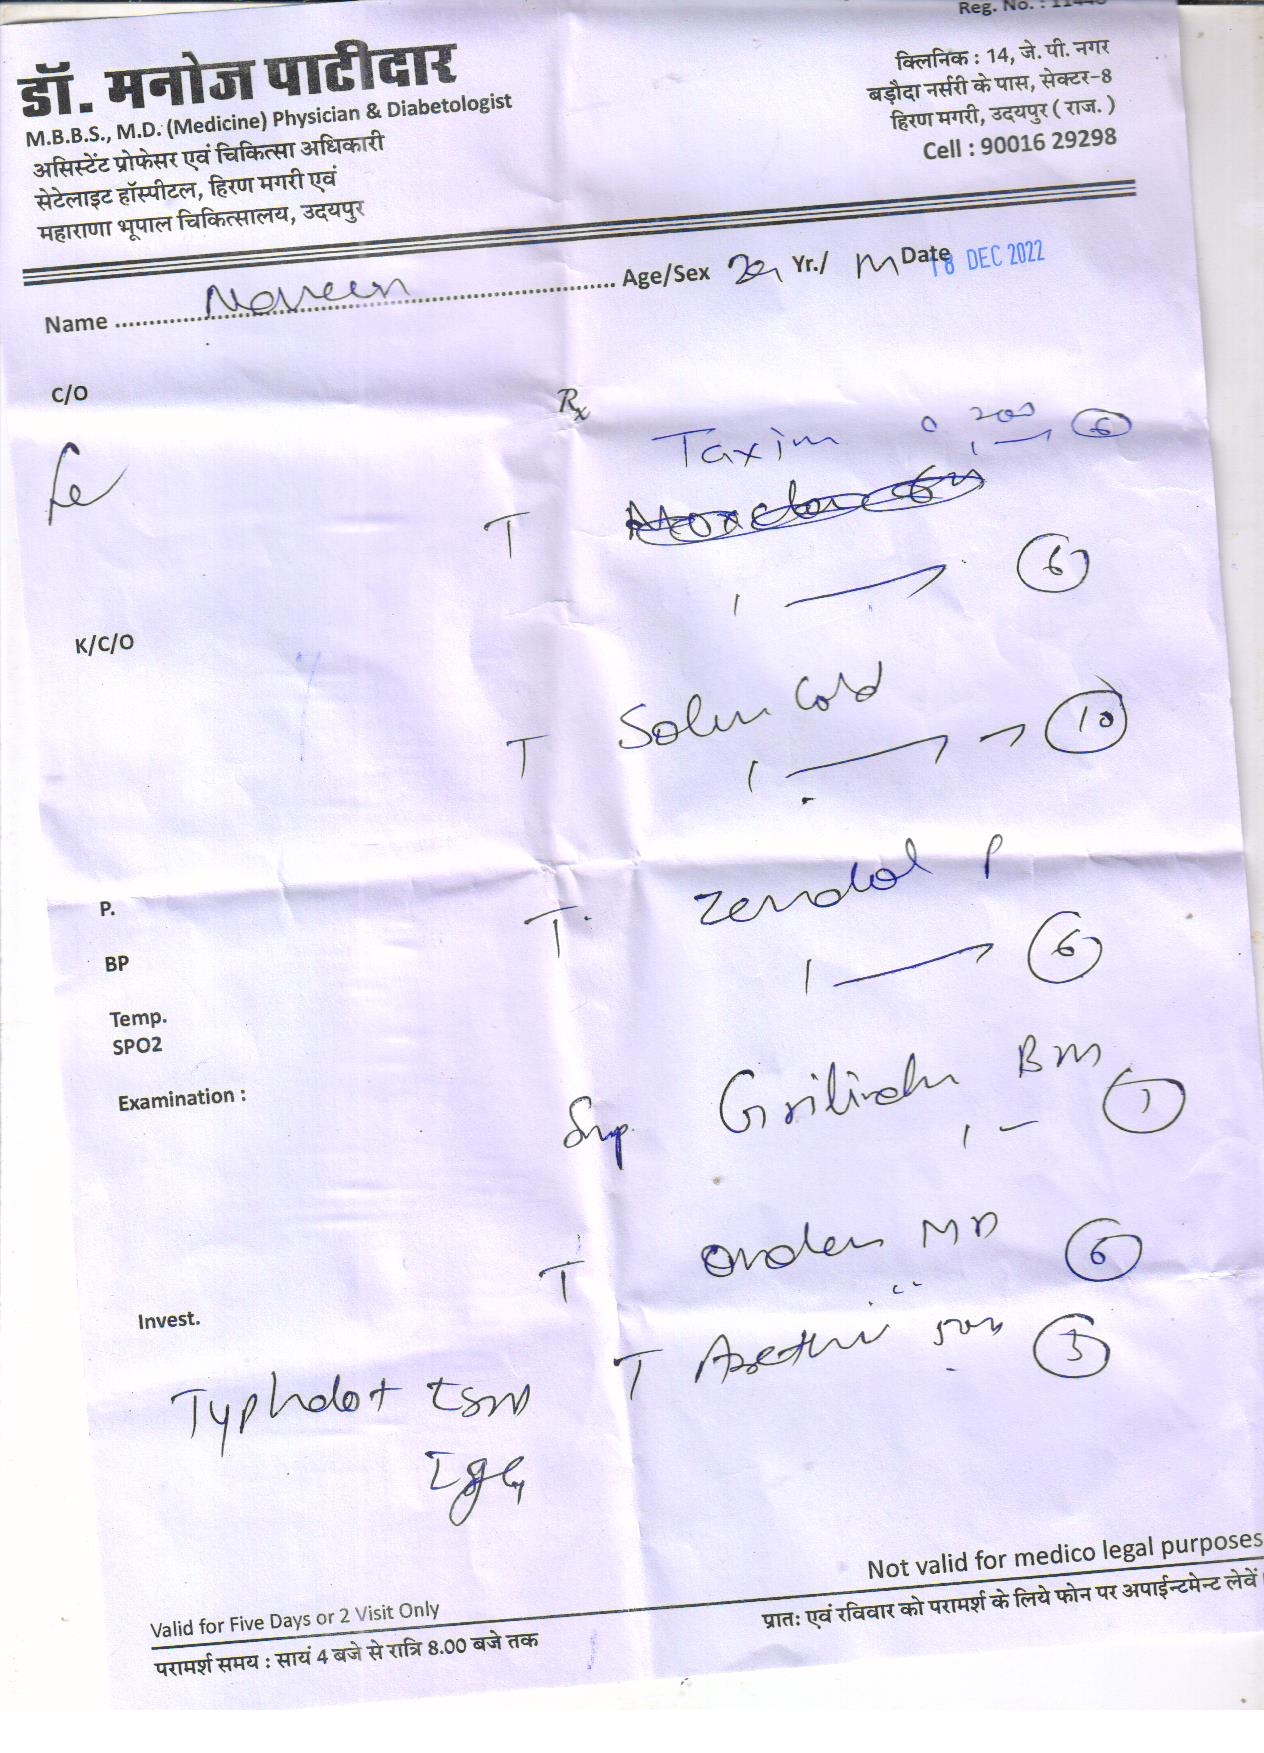 Reg. No. : 11440
डॉ. मनोज पाटीदार
M.B.B.S., M.D. (Medicine) Physician & Diabetologist
असिस्टेंट प्रोफेसर एवं चिकित्सा अधिकारी
सेटेलाइट हॉस्पीटल, हिरण मगरी एवं
महाराणा भूपाल चिकित्सालय, उदयपुर
क्लिनिक : 14, जे. पी. नगर
बड़ौदा नर्सरी के पास, सेक्टर-8
हिरण मगरी, उदयपुर ( राज. )
Cell : 90016 29298
Name Naveen Age/Sex Yr./ M Date 18 DEC 2022
C/O
Rx
Taxim O 200
1 — 6
T
1 → 6
K/C/O
T Solin Cold
1 → → 10
P.
T. Zerodol P
1 → 6
BP
Temp.
SPO2
Examination :
Syp. BM
1 — 1
T Ondem MD 6
Invest.
T 500 3
Typhdot IgM
IgG
Not valid for medico legal purposes
Valid for Five Days or 2 Visit Only
प्रातः एवं रविवार को परामर्श के लिये फोन पर अपाईन्टमेन्ट लेवें
परामर्श समय : सायं 4 बजे से रात्रि 8.00 बजे तक